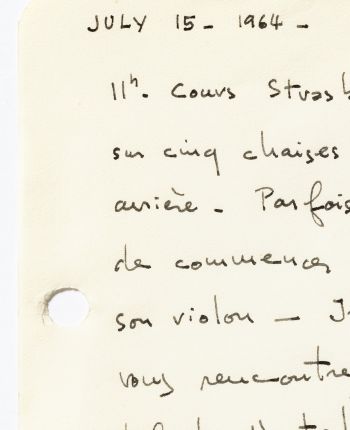 JULY 15 - 1964 -
11h. Cours Strasb
sur cinq chaises
arrière - Parfois
de commencer
son violon - J
vous rencontre